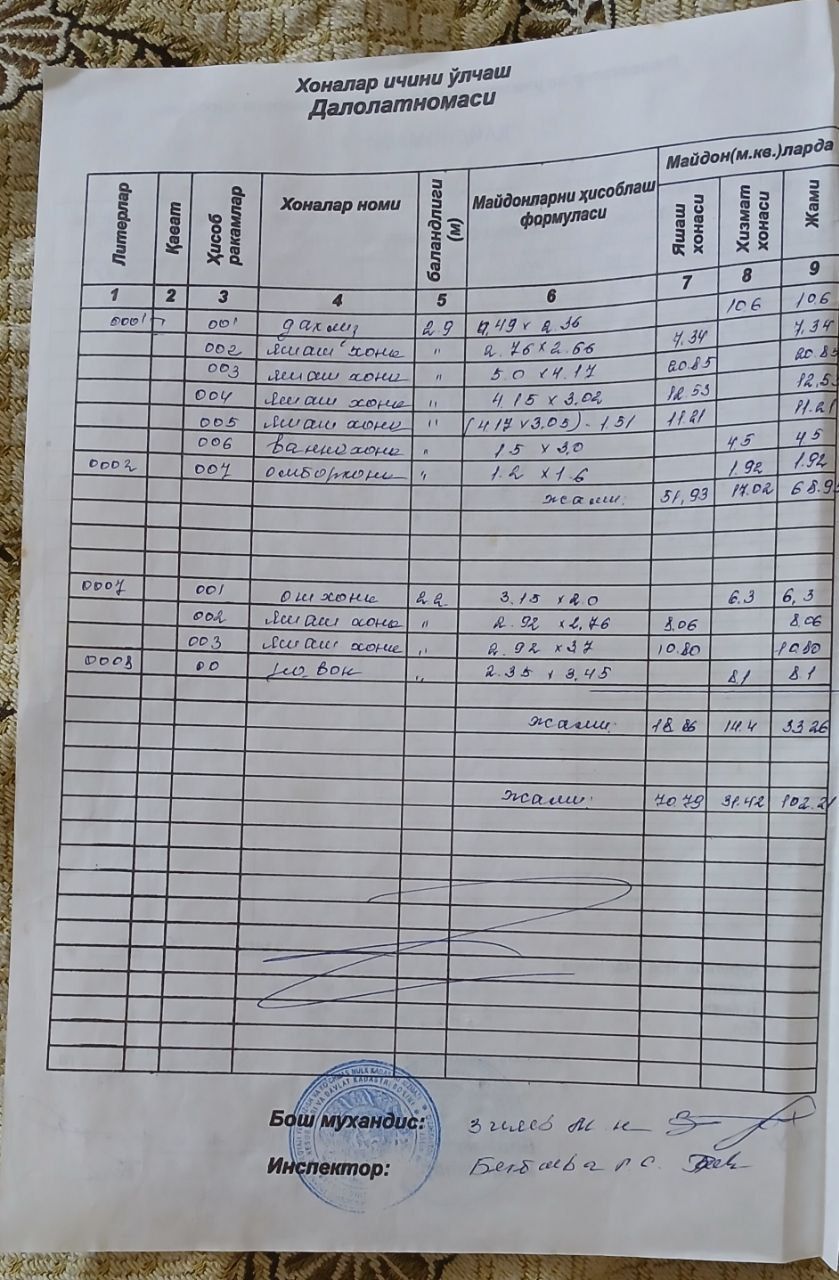 Хоналар ичини ўлчаш
Далолатномаси
Литерлар Қават Ҳисоб рақамлар Хоналар номи баландлиги (м) Майдонларни ҳисоблаш формуласи Майдон(м.кв.)ларда
Яшаш хонаси Хизмат хонаси Жами
1 2 3 4 5 6 7 8 9
0001 001 дахлиз 2.9 4,49 x 2.36 10.6 10.6
002 яшаш хона " 2.76 x 2.66 7,34 7,34
003 яшаш хона " 5.0 x 4.17 20.85 20.85
004 яшаш хона " 4.15 x 3.02 12.53 12,53
005 яшаш хона " (4.17 x 3,05) - 1.51 11.21 11.21
006 ваннахона " 1.5 x 3,0 4.5 4.5
0002 007 омборхона " 1.2 x 1.6 1.92 1.92
жами: 51,93 17.02 68.95
0007 001 ошхона 2.2 3.15 x 2.0 6.3 6,3
002 яшаш хона " 2.92 x 2,76 8,06 8,06
003 яшаш хона " 2.92 x 3.7 10.80 10.80
0008 00 " 2.35 x 3,45 8.1 8.1
жами: 18.86 14.4 33.26
жами: 70.79 31.42 102.21
Бош мухандис:
Инспектор: